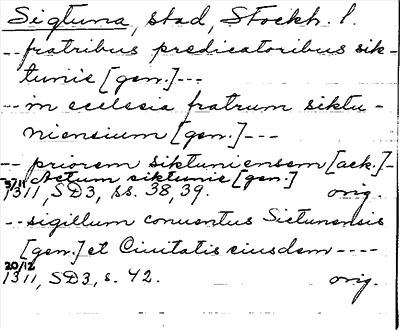 Sigtuna, stad, Stockh. l.
-- fratribus predicatoribus sik-
tunie [gen.] ---
-- in ecclesia fratrum siktu-
niensium [gen.] ---
-- priorem siktuniensem [ack.] -
-- Actum siktunie [gen.]
5/11 1311, SD3, ss. 38, 39. orig.
-- sigillum conuentus Sictunensis
[gen.] et Ciuitatis eiusdem ----
20/12
1311, SD3, s. 42. orig.